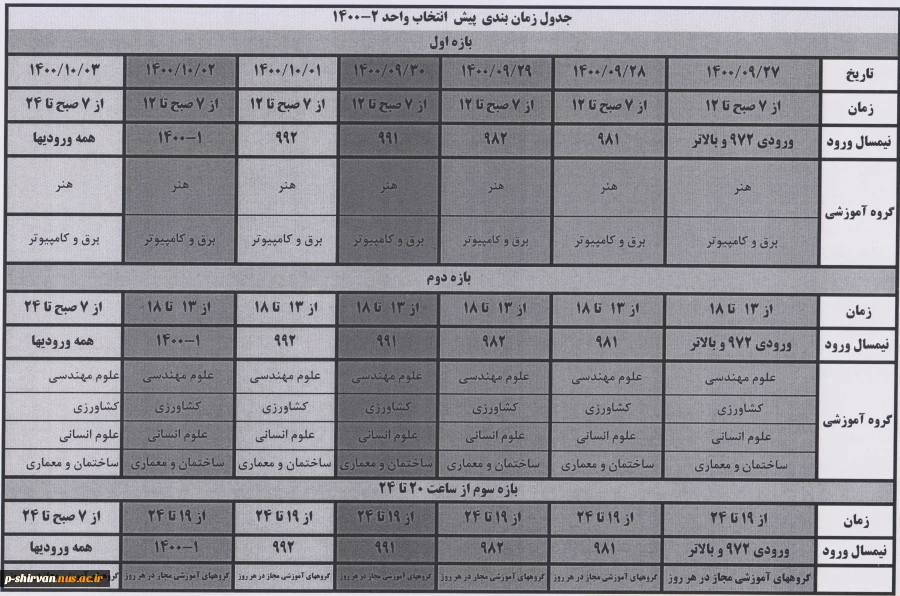 جدول زمان بندی پیش انتخاب واحد ۲-۱۴۰۰
بازه اول
تاریخ ۱۴۰۰/۰۹/۲۷ ۱۴۰۰/۰۹/۲۸ ۱۴۰۰/۰۹/۲۹ ۱۴۰۰/۰۹/۳۰ ۱۴۰۰/۱۰/۰۱ ۱۴۰۰/۱۰/۰۲ ۱۴۰۰/۱۰/۰۳
زمان از ۷ صبح تا ۱۲ از ۷ صبح تا ۱۲ از ۷ صبح تا ۱۲ از ۷ صبح تا ۱۲ از ۷ صبح تا ۱۲ از ۷ صبح تا ۱۲ از ۷ صبح تا ۲۴
نیمسال ورود ورودی ۹۷۲ و بالاتر ۹۸۱ ۹۸۲ ۹۹۱ ۹۹۲ ۱-۱۴۰۰ همه ورودیها
گروه آموزشی هنر هنر هنر هنر هنر هنر هنر
برق و کامپیوتر برق و کامپیوتر برق و کامپیوتر برق و کامپیوتر برق و کامپیوتر برق و کامپیوتر برق و کامپیوتر
بازه دوم
زمان از ۱۳ تا ۱۸ از ۱۳ تا ۱۸ از ۱۳ تا ۱۸ از ۱۳ تا ۱۸ از ۱۳ تا ۱۸ از ۱۳ تا ۱۸ از ۷ صبح تا ۲۴
نیمسال ورود ورودی ۹۷۲ و بالاتر ۹۸۱ ۹۸۲ ۹۹۱ ۹۹۲ ۱-۱۴۰۰ همه ورودیها
گروه آموزشی علوم مهندسی علوم مهندسی علوم مهندسی علوم مهندسی علوم مهندسی علوم مهندسی علوم مهندسی
کشاورزی کشاورزی کشاورزی کشاورزی کشاورزی کشاورزی کشاورزی
علوم انسانی علوم انسانی علوم انسانی علوم انسانی علوم انسانی علوم انسانی علوم انسانی
ساختمان و معماری ساختمان و معماری ساختمان و معماری ساختمان و معماری ساختمان و معماری ساختمان و معماری ساختمان و معماری
بازه سوم از ساعت ۲۰ تا ۲۴
زمان از ۱۹ تا ۲۴ از ۱۹ تا ۲۴ از ۱۹ تا ۲۴ از ۱۹ تا ۲۴ از ۱۹ تا ۲۴ از ۱۹ تا ۲۴ از ۷ صبح تا ۲۴
نیمسال ورود ورودی ۹۷۲ و بالاتر ۹۸۱ ۹۸۲ ۹۹۱ ۹۹۲ ۱-۱۴۰۰ همه ورودیها
گروههای آموزشی مجاز در هر روز گروههای آموزشی مجاز در هر روز گروههای آموزشی مجاز در هر روز گروههای آموزشی مجاز در هر روز گروههای آموزشی مجاز در هر روز گروههای آموزشی مجاز در هر روز
p-shirvan.nus.ac.ir